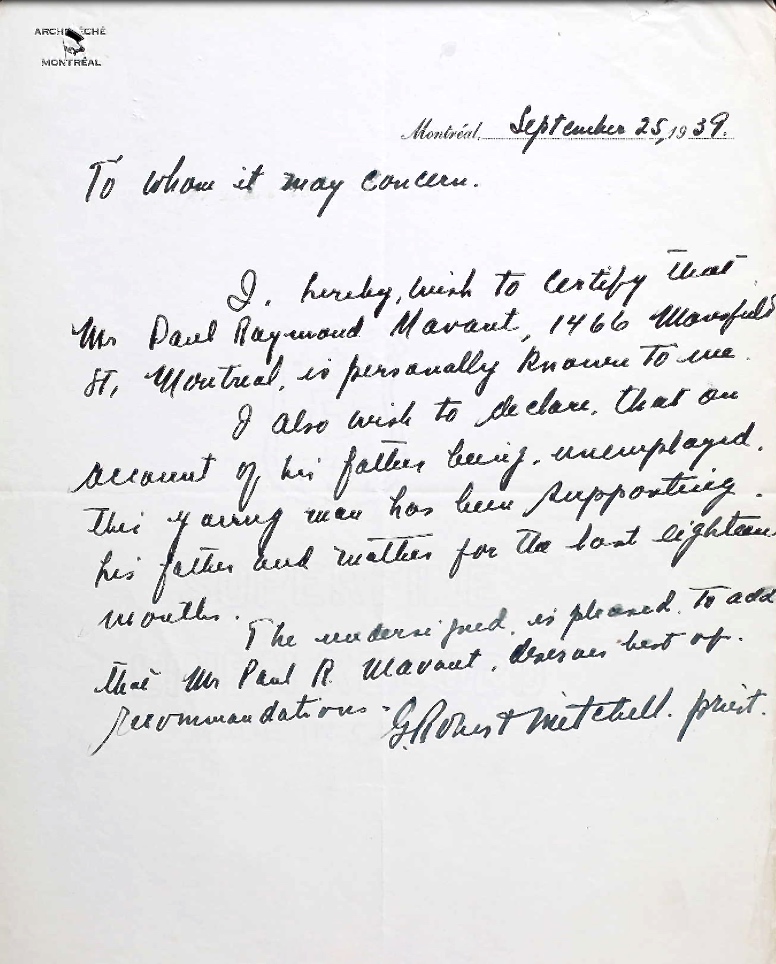 ARCHEVÊCHÉ
MONTRÉAL
Montréal, September 25, 1939.
To whom it may concern.
I, hereby, wish to certify that
Mr Paul Raymond Mavaut, 1466 Mansfield
St, Montreal, is personally known to me.
I also wish to declare, that on
account of his father being, unemployed.
this young man has been supporting.
his father and mother for the last eighteen
months.
The undersigned, is pleased, to add
that Mr Paul R. Mavaut, deserves best of.
recommandations -
G. Robert Mitchell. priest.